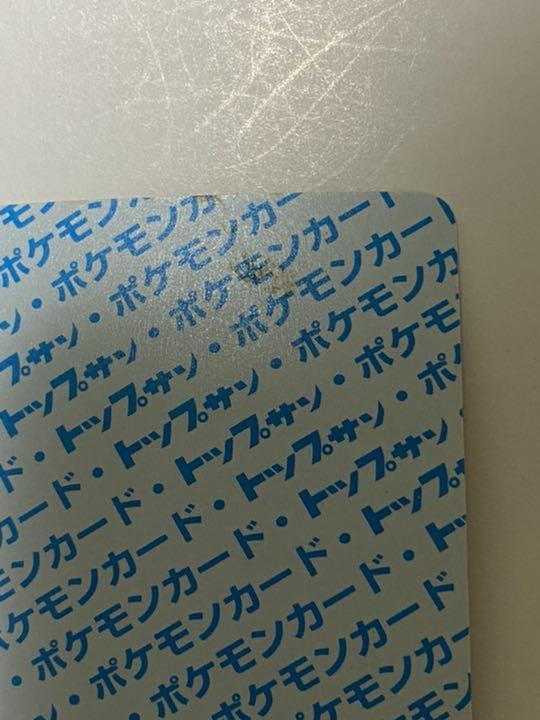 モン
ポケモンカ
ン・ポケモンカ
プサン・ポケモンカー
トップサン・ポケモンカー
ド・トップサン・ポケモンカード
ード・トップサン・ポケモンカ
カード・トップサン・ポケモ
ンカード・トップサン・ポ
モンカード・トップサン・
ケモンカード・トップサ
・ポケモンカード・ト
・ポケモンカード
ポケモンカー
モンカ